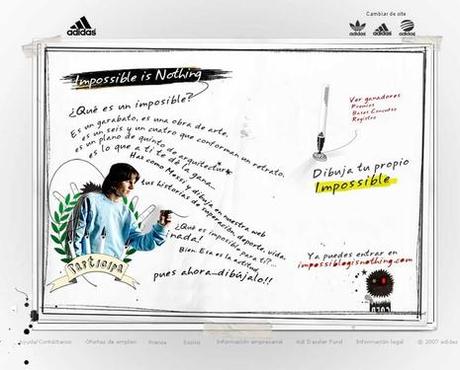 adidas
Cambiar de site
adidas
adidas
adidas
Impossible is Nothing
¿Qué es un imposible?
Es un garabato, es una obra de arte,
es un seis y un cuatro que conforman un retrato,
es un plano de quinto de arquitectura
es lo que a ti te dé la gana...
Haz como Messi y dibuja en nuestra web
tus historias de superación, deporte, vida,
¡nada!
¿Qué es imposible para ti?...
Bien. Esa es la actitud,
pues ahora...dibújalo!!
Participa
Ver ganadores
Premios
Bases Concurso
Registro
Dibuja tu propio
Impossible
Ya puedes entrar en
impossiblogisnothing.com
Ayuda/Contáctanos Ofertas de empleo Prensa Envíos Información empresarial Adi Dassler Fund Información legal © 2007 adidas